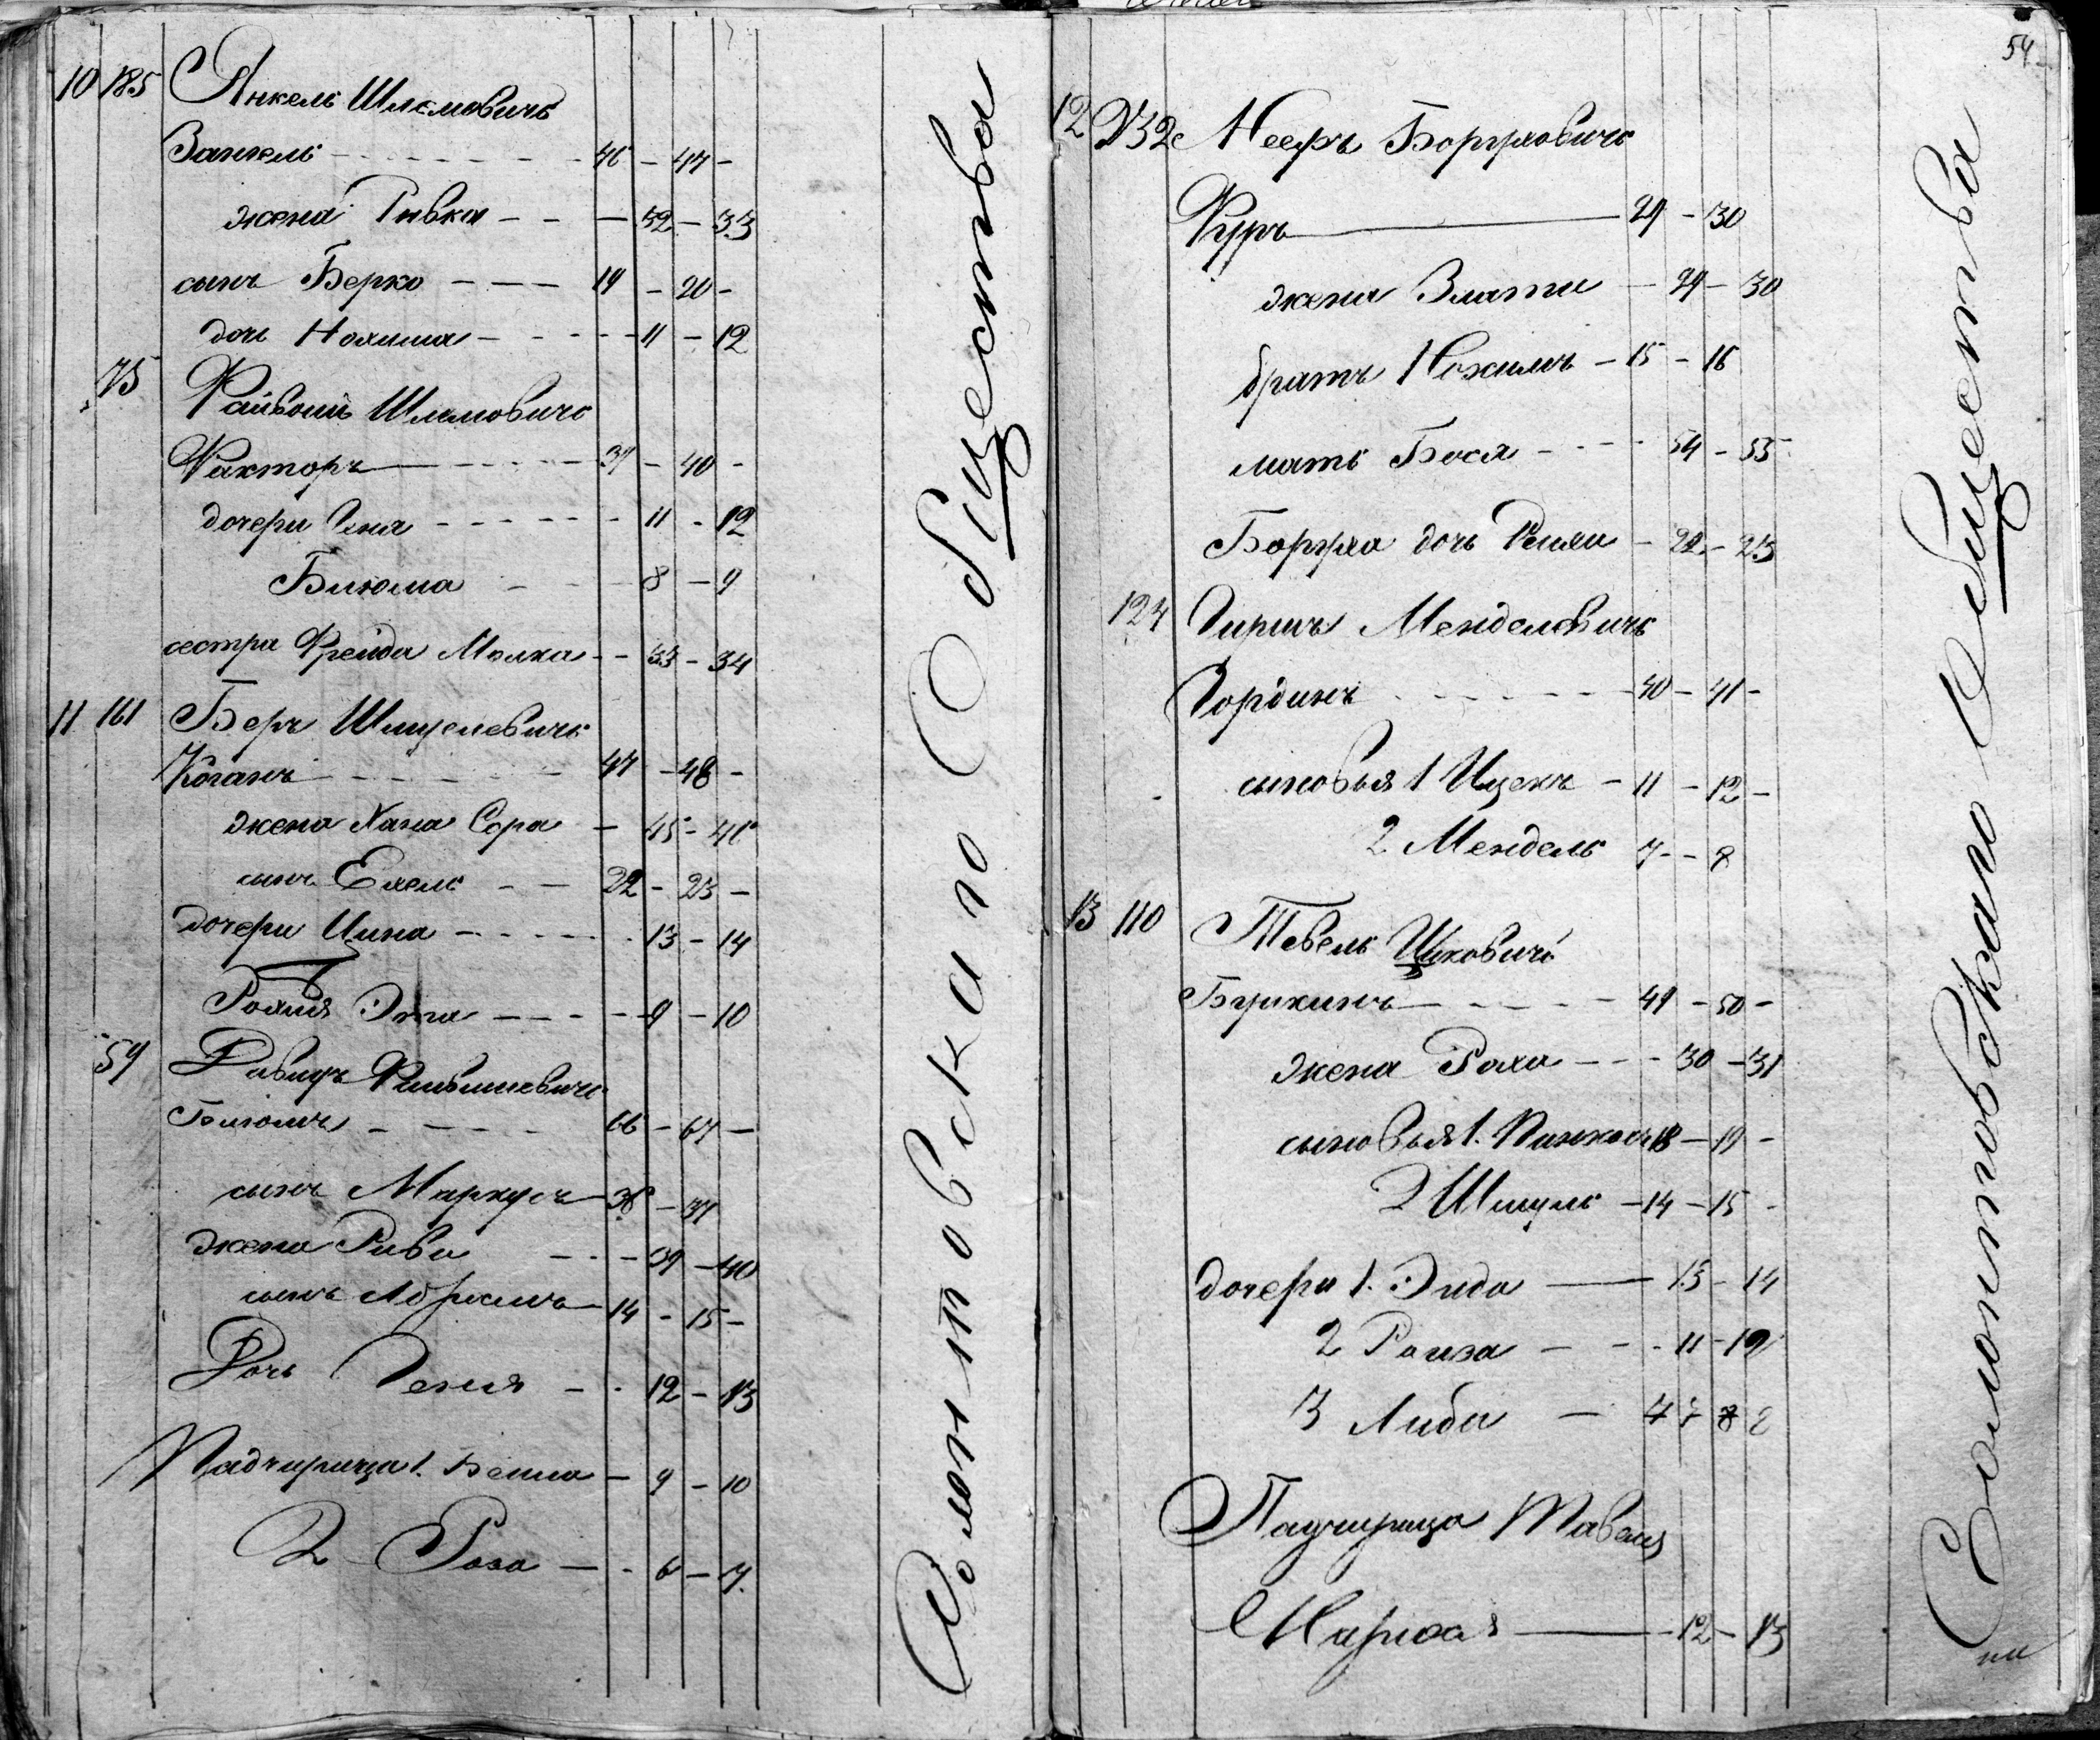 10 185 Янкель Шлемовичъ
Занкель - 46 - 47 -
жена Ривка - - - 32 - 33
сынъ Берко - - - 19 - 20 -
дочь - - - 11 - 12
75 Файвошъ Шлемовичъ
Факторъ - 39 - 40 -
дочери Гена - - - 11 - 12
Блюма - - 8 - 9
сестра Фрейда Малка - - 33 - 34
11 161 Беръ Шмуелевичъ
Коганъ - 47 - 48 -
жена Хана Сора - 45 - 46
сынъ - - 22 - 23 -
дочери Цина - - - 13 - 14
Эта - - - 9 - 10
59 Давидъ Файвишевичъ
Блюмъ - - - 66 - 67 -
сынъ Маркусъ - 36 - 37
жена Рива - - - 39 - 40
сынъ Абрамъ - 14 - 15 -
Дочь Геня - - 12 - 13
Падчирица 1. Бейла - 9 - 10
2 - Роза - - 6 - 7.
Солонтовскаго Общества
54
12 132 Боруховичъ
Фуръ 29 - 30
жена Злата - 29 - 30
братъ Нохимъ - 15 - 16
мать Бася - - - 54 - 55
Боруха дочь - 22 - 23
124 Гиршъ Менделевичъ
Гординъ - 40 - 41 -
сыновья 1 Ицекъ - 11 - 12 -
2 Мендель 7 - - 8
13 110 Тевель Ицковичъ
- 49 - 50 -
жена Роха - - - 30 - 31
сыновья 1. Пинхосъ 18 - 19 -
2 Шмуль - 14 - 15 -
дочери 1. Эйда - 13 - 14
2 Раиза - - - 11 - 12
3 Либа - 7 7 8 8
Падчирица Тавеля
Марьяся - 12 - 13
Солонтовскаго Общества